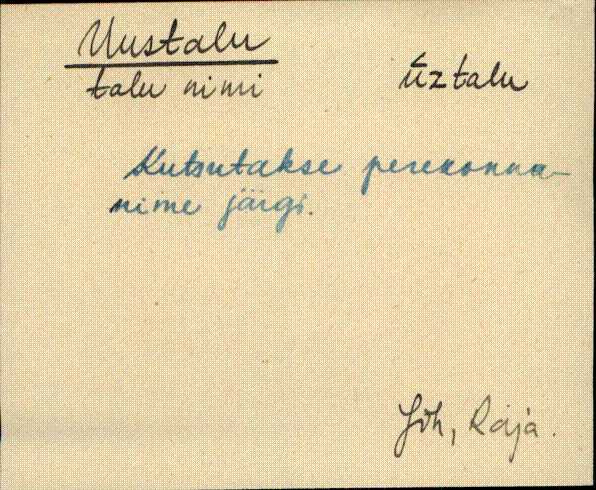 Uustalu
talu nimi ūztalu
Kutsutakse perekonna-
nime järgi.
Jõh, Raja.